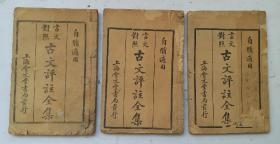 自脩適用
言文
對照
古文評註全集
上海會文堂書局發行
自脩適用
言文
對照
古文評註全集
上海會文堂書局發行
自脩適用
言文
對照
古文評註全集
上海會文堂書局發行